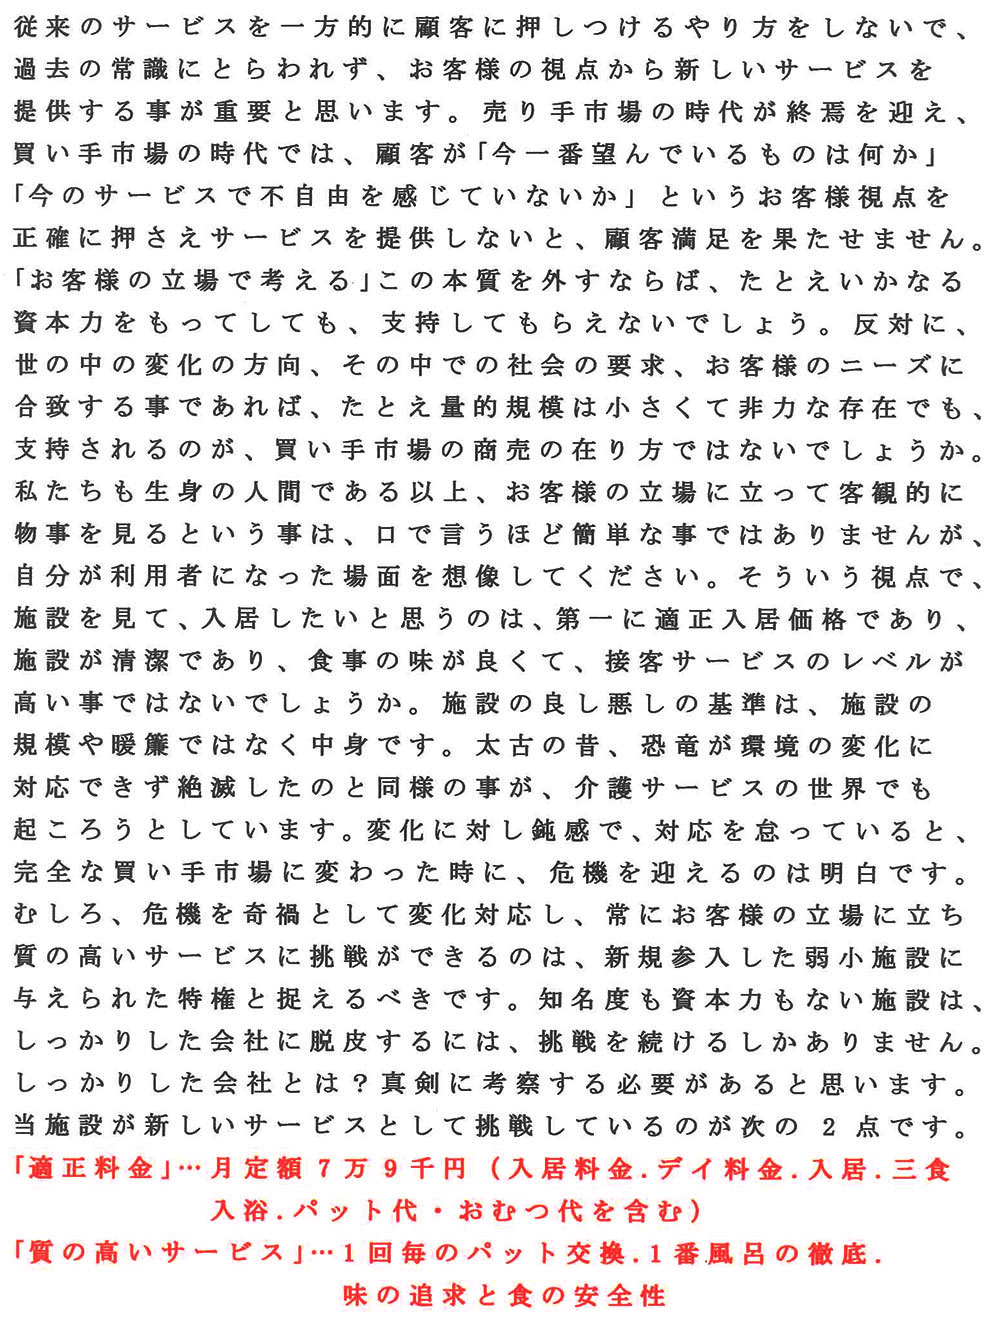 従来のサービスを一方的に顧客に押しつけるやり方をしないで、
過去の常識にとらわれず、お客様の視点から新しいサービスを
提供する事が重要と思います。売り手市場の時代が終焉を迎え、
買い手市場の時代では、顧客が「今一番望んでいるものは何か」
「今のサービスで不自由を感じていないか」というお客様視点を
正確に押さえサービスを提供しないと、顧客満足を果たせません。
「お客様の立場で考える」この本質を外すならば、たとえいかなる
資本力をもってしても、支持してもらえないでしょう。反対に、
世の中の変化の方向、その中での社会の要求、お客様のニーズに
合致する事であれば、たとえ量的規模は小さくて非力な存在でも、
支持されるのが、買い手市場の商売の在り方ではないでしょうか。
私たちも生身の人間である以上、お客様の立場に立って客観的に
物事を見るという事は、口で言うほど簡単な事ではありませんが、
自分が利用者になった場面を想像してください。そういう視点で、
施設を見て、入居したいと思うのは、第一に適正入居価格であり、
施設が清潔であり、食事の味が良くて、接客サービスのレベルが
高い事ではないでしょうか。施設の良し悪しの基準は、施設の
規模や暖簾ではなく中身です。太古の昔、恐竜が環境の変化に
対応できず絶滅したのと同様の事が、介護サービスの世界でも
起ころうとしています。変化に対し鈍感で、対応を怠っていると、
完全な買い手市場に変わった時に、危機を迎えるのは明白です。
むしろ、危機を奇禍として変化対応し、常にお客様の立場に立ち
質の高いサービスに挑戦ができるのは、新規参入した弱小施設に
与えられた特権と捉えるべきです。知名度も資本力もない施設は、
しっかりした会社に脱皮するには、挑戦を続けるしかありません。
しっかりした会社とは?真剣に考察する必要があると思います。
当施設が新しいサービスとして挑戦しているのが次の 2 点です。
「適正料金」…月定額7万9千円(入居料金.デイ料金.入居.三食
入浴.パット代・おむつ代を含む)
「質の高いサービス」…1回毎のパット交換.1番風呂の徹底.
味の追求と食の安全性